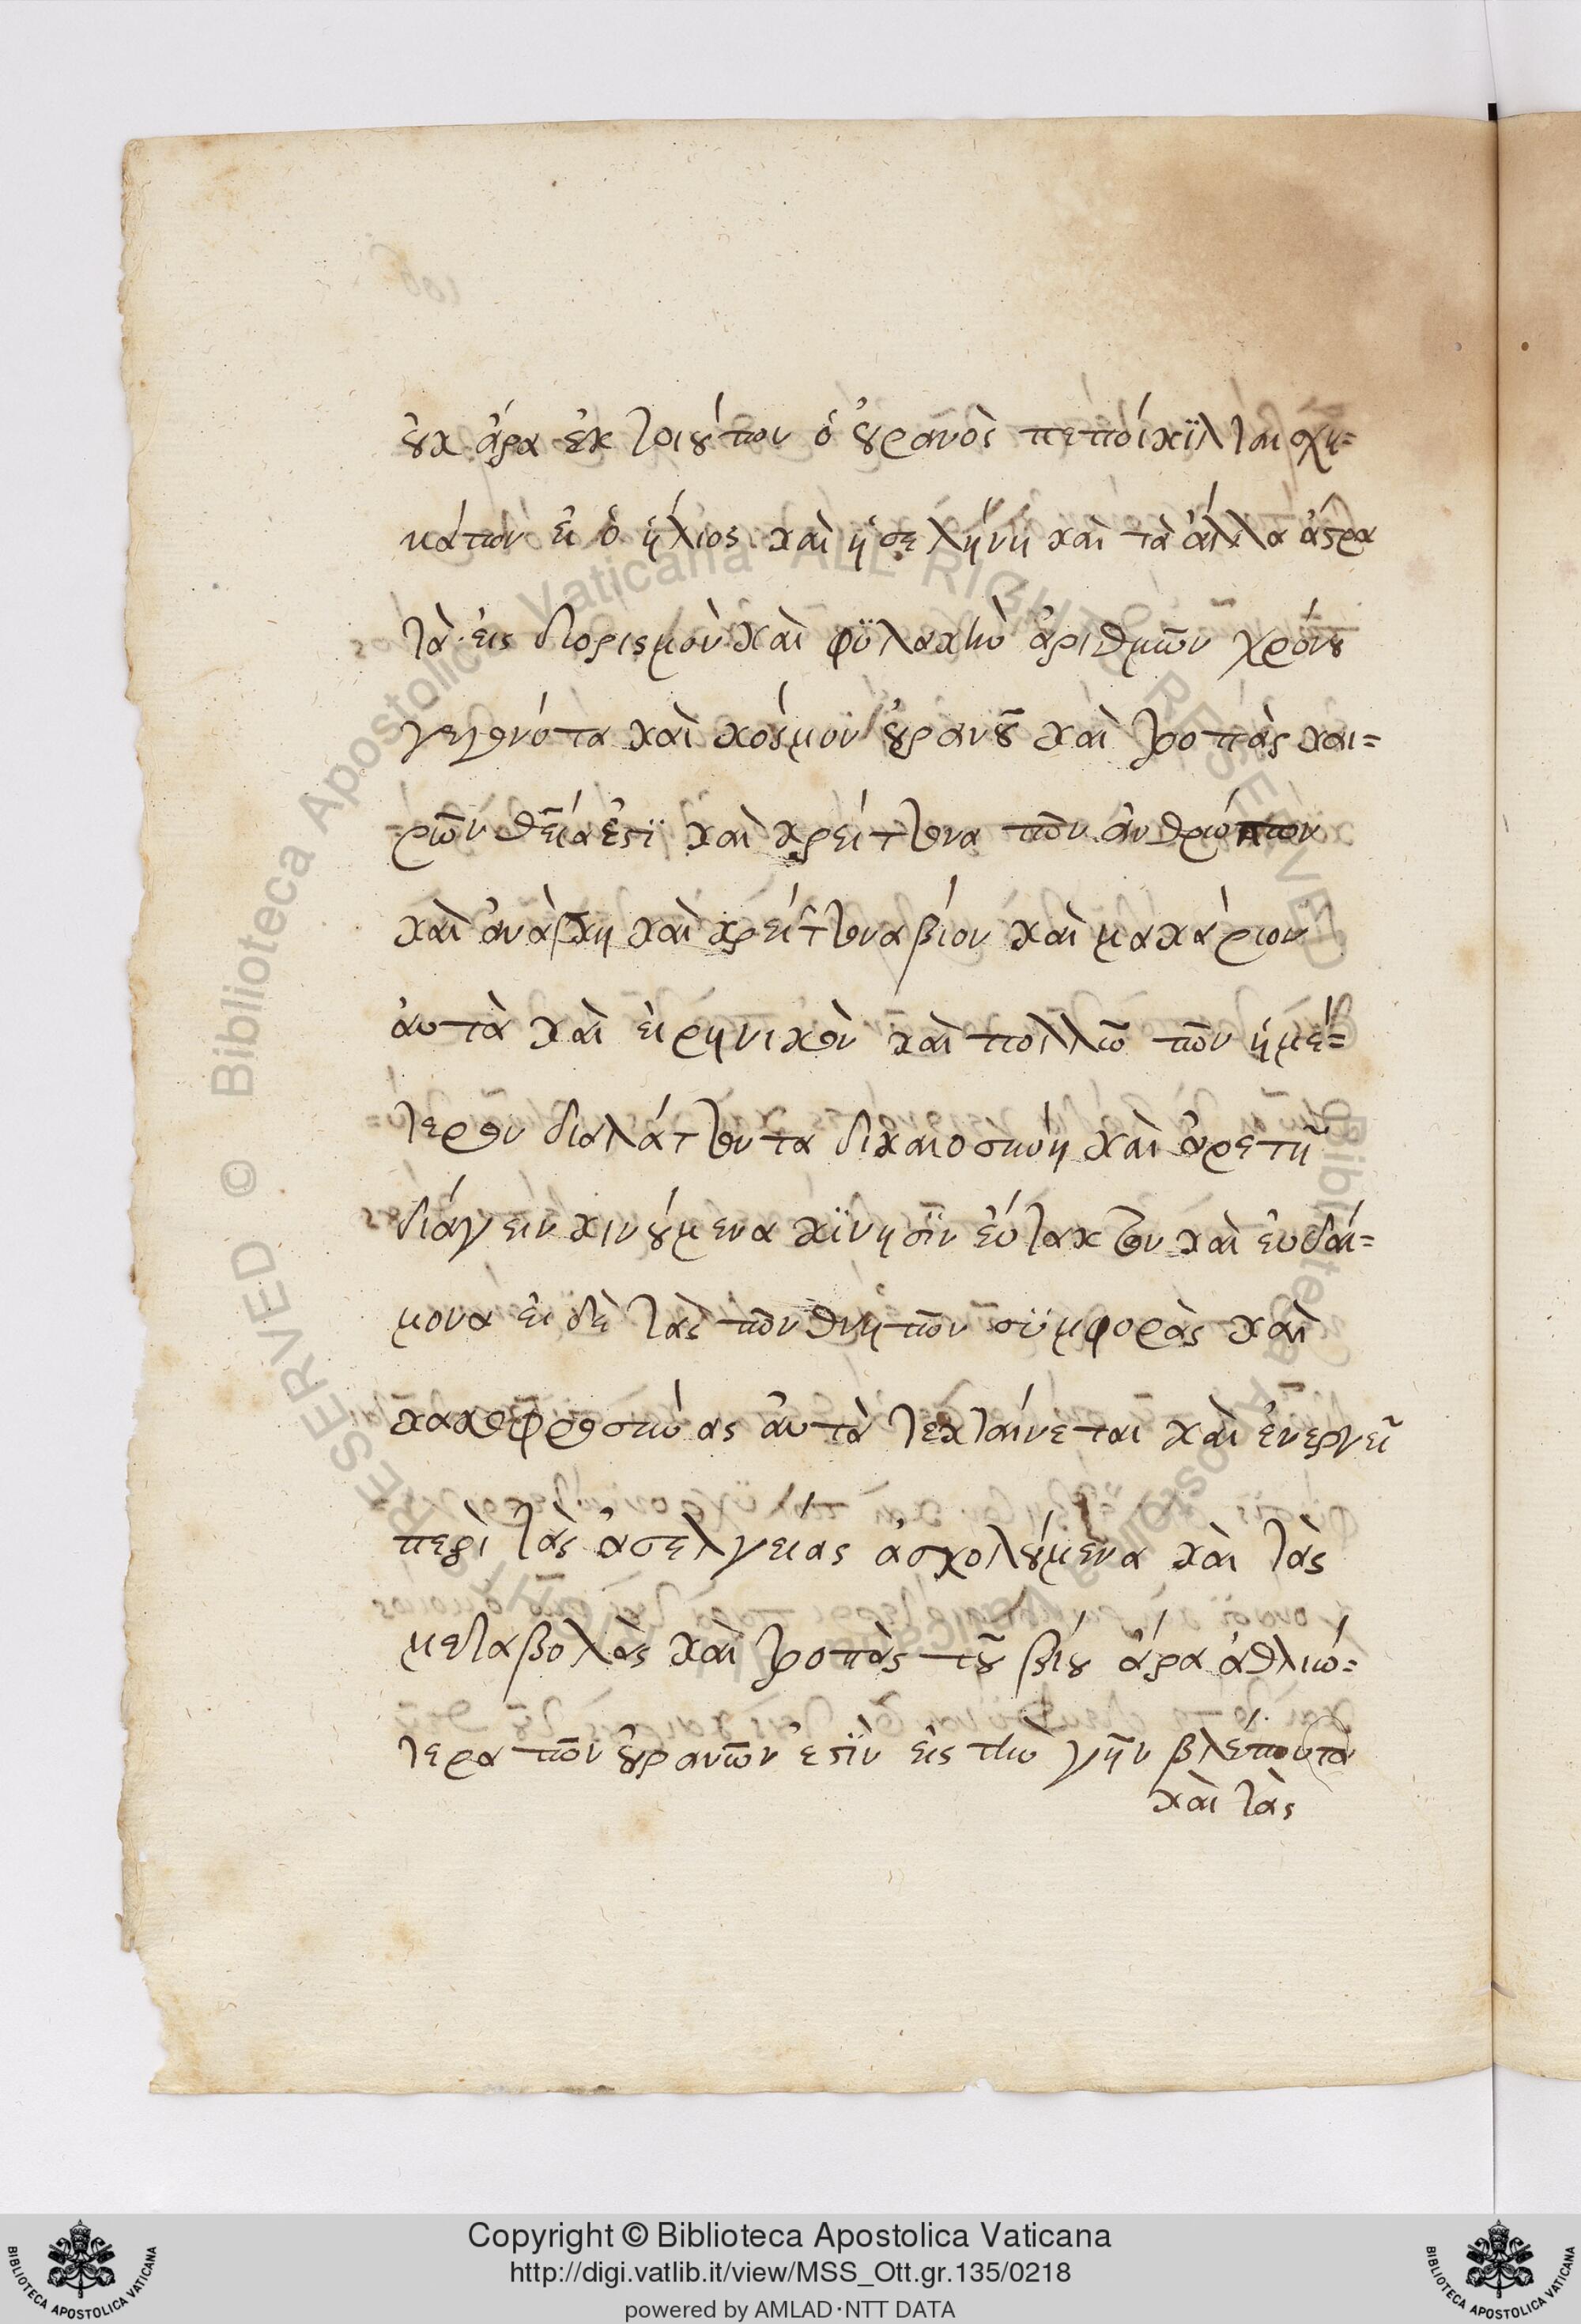 οὐκ ἄρα ἐκ τοιούτων ὁ οὐρανὸς πεποίκϊλται σχη=
μάτων εἰ ὁ ἥλιος καὶ ἡ σελήνη καὶ τὰ ἄλλα ἄστρα
τὰ εἰς διορισμὸν καὶ φϋλακὴν ἀριθμῶν χρόνου
γεγονότα καὶ κόσμον οὐρανοῦ καὶ τροπὰς και=
ρῶν θεῖά ἐστϊ καὶ κρείττονα τῶν ἀνθρώπων
καὶ ἀνάγκη καὶ κρείττονα βίον καὶ μακάριον
αὐτὰ καὶ εἰρηνικὸν καὶ πολλῶ τῶν ἡμε=
τέρον διαλάττοντα δικαιοσύνη καὶ ἀρετῆ
διάγειν κινούμενα κϊνησϊν εὔτακτον καὶ εὐδαί=
μονα εἰ δὲ τὰς τῶν θνητῶν σϋμφορὰς καὶ
κακοφροσύνας αὐτὰ τεκταίνεται καὶ ἐνεργεῖ
περὶ τὰς ἀσελγείας ἀσχολούμενα καὶ τὰς
μεταβολὰς καὶ τροπὰς τοῦ βίου ἄρα ἀθλιώ=
τερα τῶν οὐρανῶν ἐστϊν εἰς τὴν γῆν βλέποντα
καὶ τὰς
© Biblioteca Apostolica Vaticana ALL RIGHTS RESERVED
Copyright © Biblioteca Apostolica Vaticana
http://digi.vatlib.it/view/MSS_Ott.gr.135/0218
powered by AMLAD·NTT DATA
BIBLIOTECA APOSTOLICA VATICANA
BIBLIOTECA APOSTOLICA VATICANA